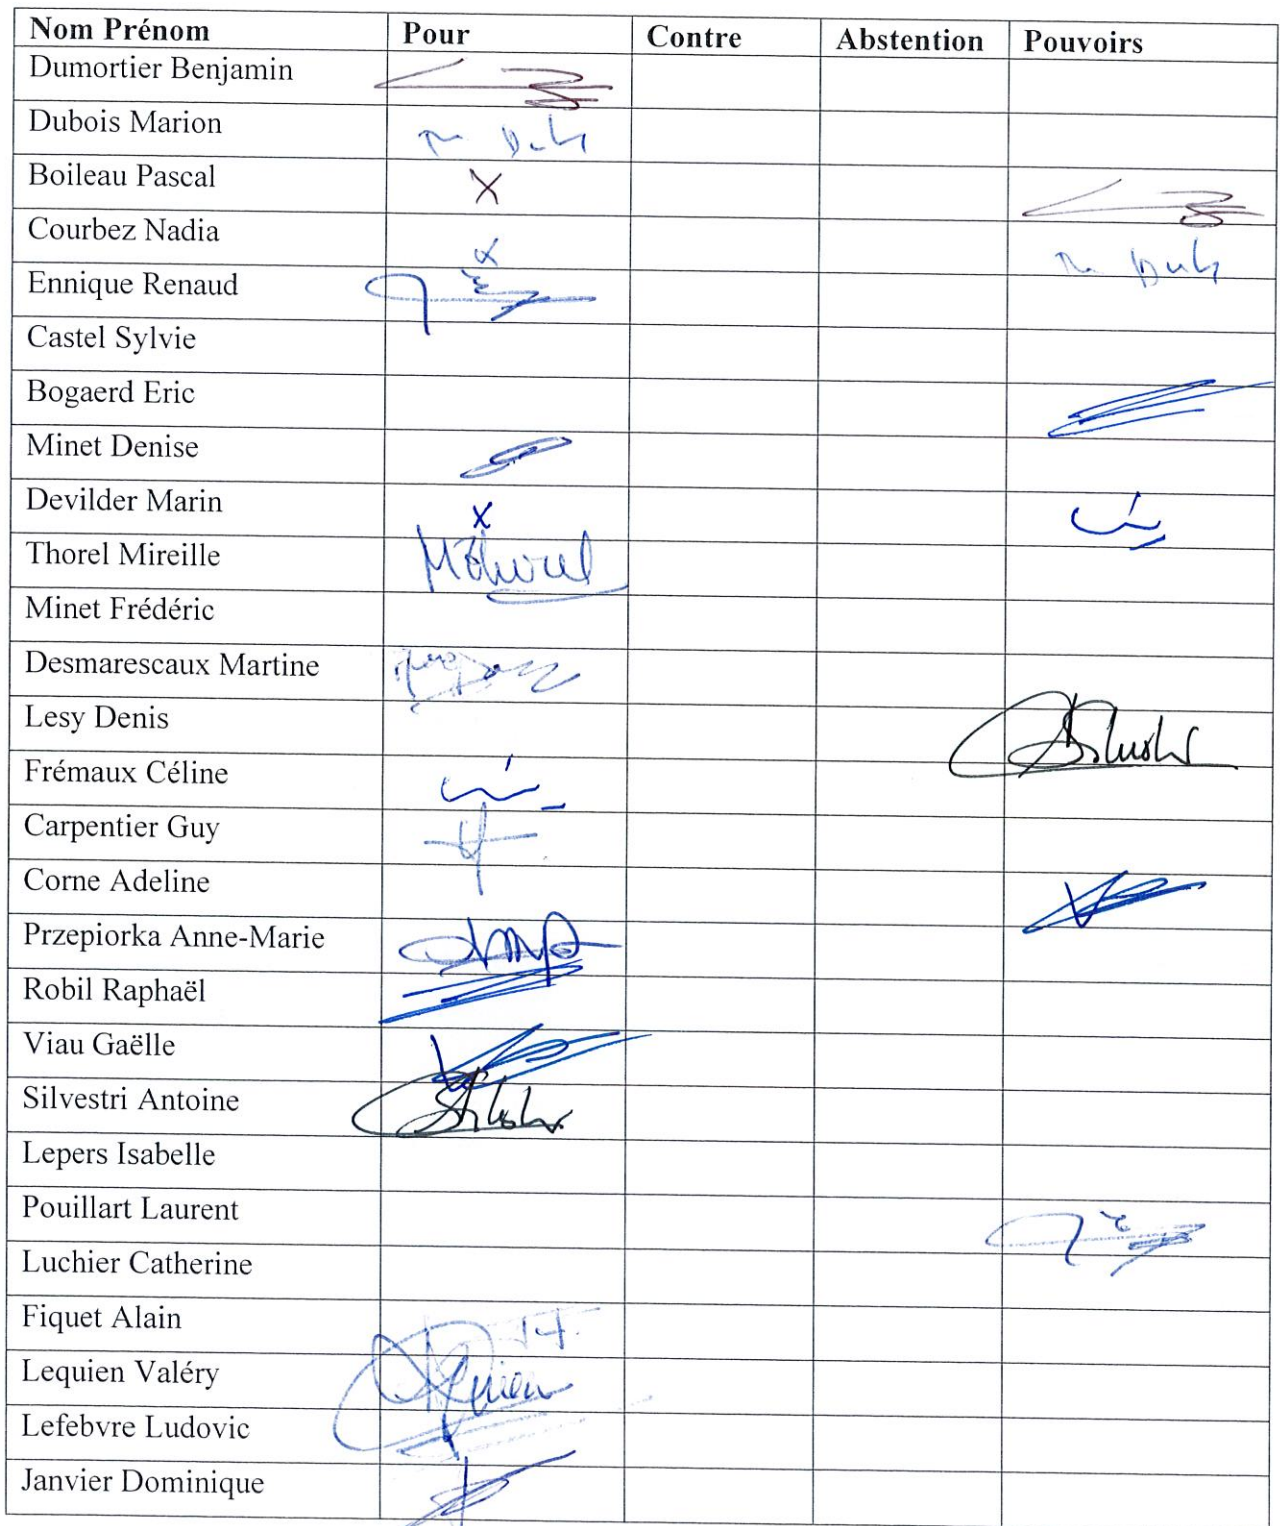 Nom Prénom Pour Contre Abstention Pouvoirs
Dumortier Benjamin
Dubois Marion
Boileau Pascal X
Courbez Nadia
Ennique Renaud
Castel Sylvie
Bogaerd Eric
Minet Denise
Devilder Marin X
Thorel Mireille
Minet Frédéric
Desmarescaux Martine
Lesy Denis
Frémaux Céline
Carpentier Guy
Corne Adeline
Przepiorka Anne-Marie
Robil Raphaël
Viau Gaëlle
Silvestri Antoine
Lepers Isabelle
Pouillart Laurent
Luchier Catherine
Fiquet Alain
Lequien Valéry
Lefebvre Ludovic
Janvier Dominique